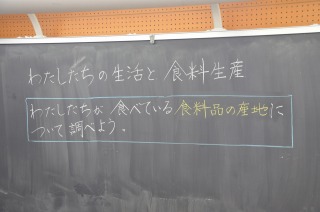 わたしたちの生活と食料生産
わたしたちが食べている食料品の産地に
ついて調べよう。